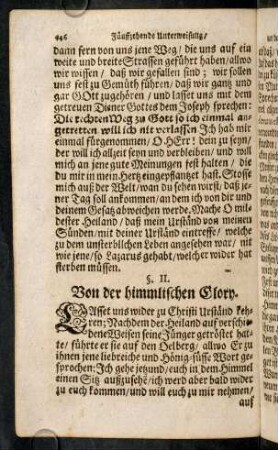 446 Fünffzehende Unterweisung/
dann fern von uns jene Weg/ die uns auf ein
weite und breite Strassen geführt haben/allwo
wir wissen/ daß wir gefallen sind; wir sollen
uns fest zu Gemüth führen/ daß wir gantz und
gar GOtt zugehören/ und lasset uns mit dem
getreuen Diener Gottes dem Joseph sprechen:
Die rechten Weg zu Gott so ich einmal an-
getretten will ich nit verlassen Ich hab mir
einmal fürgenommen/ O HErr! dein zu seyn/
der will ich allzeit seyn und verbleiben/ und will
mich an jene gute Meinungen fest halten/ die
du mir in mein Hertz eingepflantzet hast. Stosse
mich auß der Welt/wan du sehen wirst/ daß je-
ner Tag soll ankommen/an dem ich von dir und
deinem Gesatz abweichen werde. Mache O mil-
dester Heiland/ daß mein Urständ von meinen
Sünden/mit deiner Urständ eintreffe/ welche
zu dem unsterblichen Leben angesehen war/ nit
wie jene/so Lazarus gehabt/welcher wider hat
sterben müssen.
§. II.
Von der himmlischen Glory.
LAsset uns wider zu Christi Urständ keh-
ren; Nachdem der Heiland auf verschi-
dene Weisen seine Jünger getröstet hat-
te/ führte er sie auf den Oelberg/ allwo Er zu
ihnen jene liebreiche und Hönig-süsse Wort ge-
sprochen: Ich gehe jetzund/ euch in dem Himmel
einen Sitz außzusehē/ich werd aber bald wider
zu euch kommen/und will euch zu mir nehmen/
auß